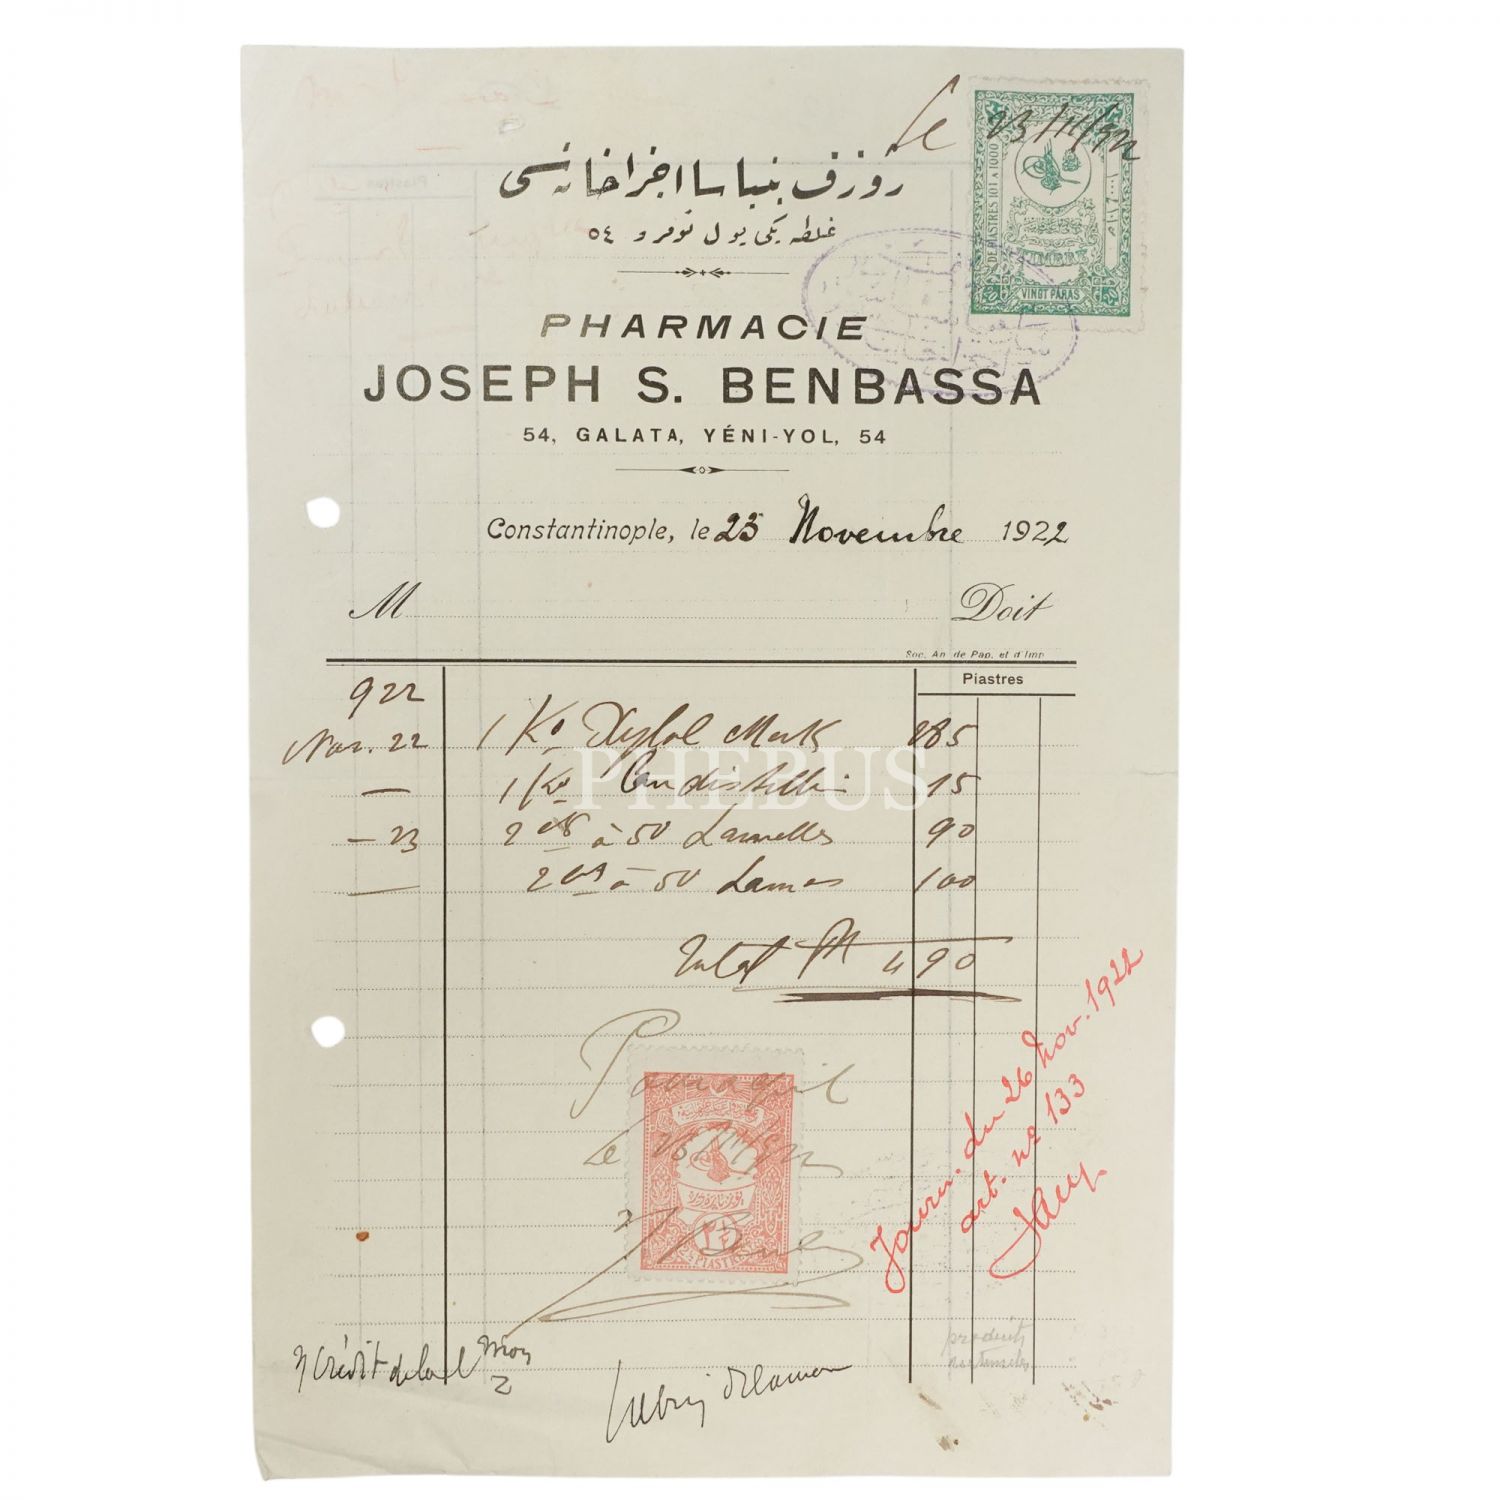 Le 23/11/922
روزف بنباسا اجزاخانه سی
غلطه یکی یول نومرو ٥٤
DE PIASTRES 101 A 1000
TIMBRE
VINGT PARAS
PHARMACIE
JOSEPH S. BENBASSA
54, GALATA, YÉNI-YOL, 54
Constantinople, le 23 Novembre 1922
M Doit
Soc. An. de Pap. et d'Imp.
Piastres
922
Nov. 22 1 Ko Xylol Merk 285
— 1 Ko Eau distillée 15
— 23 2 à 50 Lamelles 90
— 2 à 50 Lames 100
Total 490
PHEBUS
Pour acquit
Le 23/11/922
PIASTRES
Journ. du 26 Nov. 1922
art. no 133
produits
Crédit de la